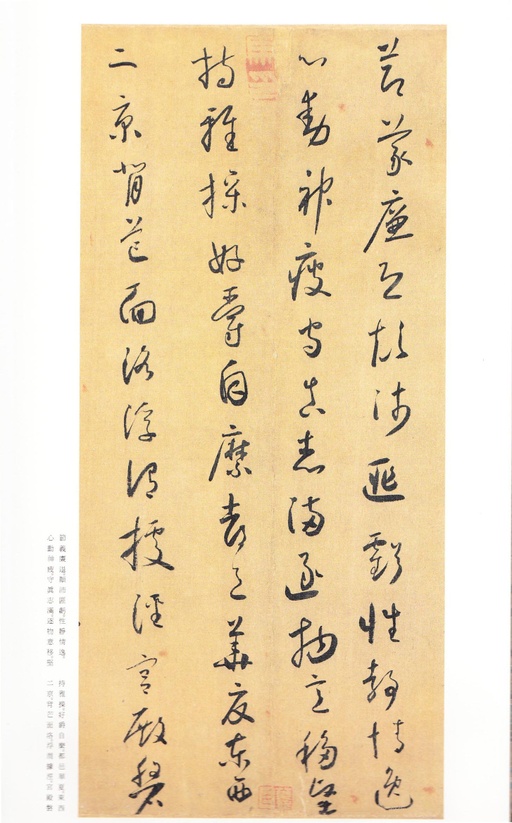 節義廉退顛沛匪虧性靜情逸
心動神疲守真志滿逐物意移堅
持雅操好爵自縻都邑華夏東西
二京背芒面洛浮渭據涇宮殿盤
節義廉退,顛沛匪虧,性靜情逸。
心動神疲,守真志滿,逐物意移,堅
持雅操,好爵自縻,都邑華夏,東西
二京,背芒面洛,浮渭據涇,宮殿盤